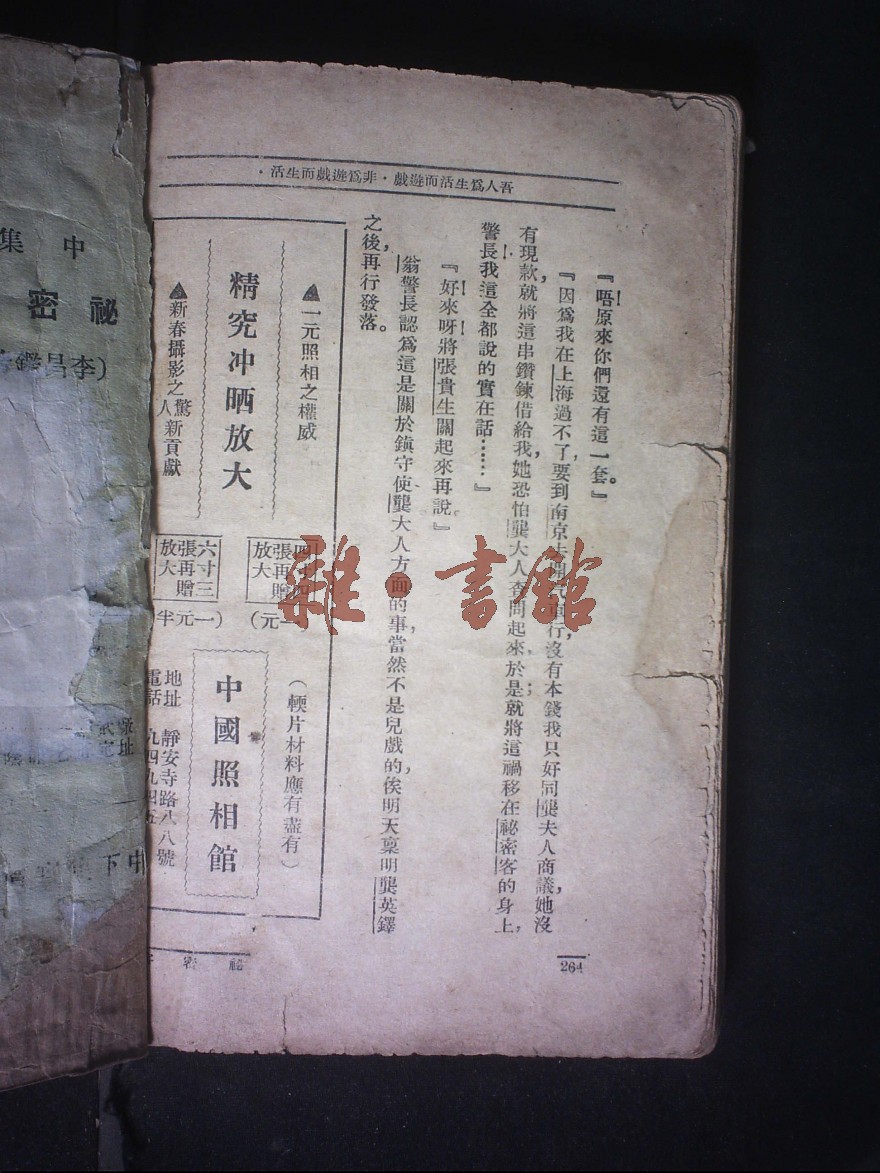 吾人爲生活而遊戲·非爲遊戲而生活·
『唔原來你們還有這一套。』
『因爲我在上海過不了，要到南京去 行，沒有本錢我只好同龔夫人商議，她沒
有現款，就將這串鑽鍊借給我，她恐怕龔大人查問起來，於是；就將這禍移在祕密客的身上，
警長我這全都說的實在話……』
『好來呀將張貴生關起來再說。』
翁警長認爲這是關於鎮守使龔大人方面的事，當然不是兒戲的，俟明天稟明龔英鐸
之後，再行發落。
▲一元照相之權威
精究冲晒放大
▲新春攝影之驚人新貢獻
張再贈
放大
(一元)
六寸三
張再贈
放大
(一元半)
(輭片材料應有盡有)
中國照相館
地址 靜安寺路 八號
電話 九四九四五
264
祕密
中集
祕密
(李昌鑑
中下
雜·書館